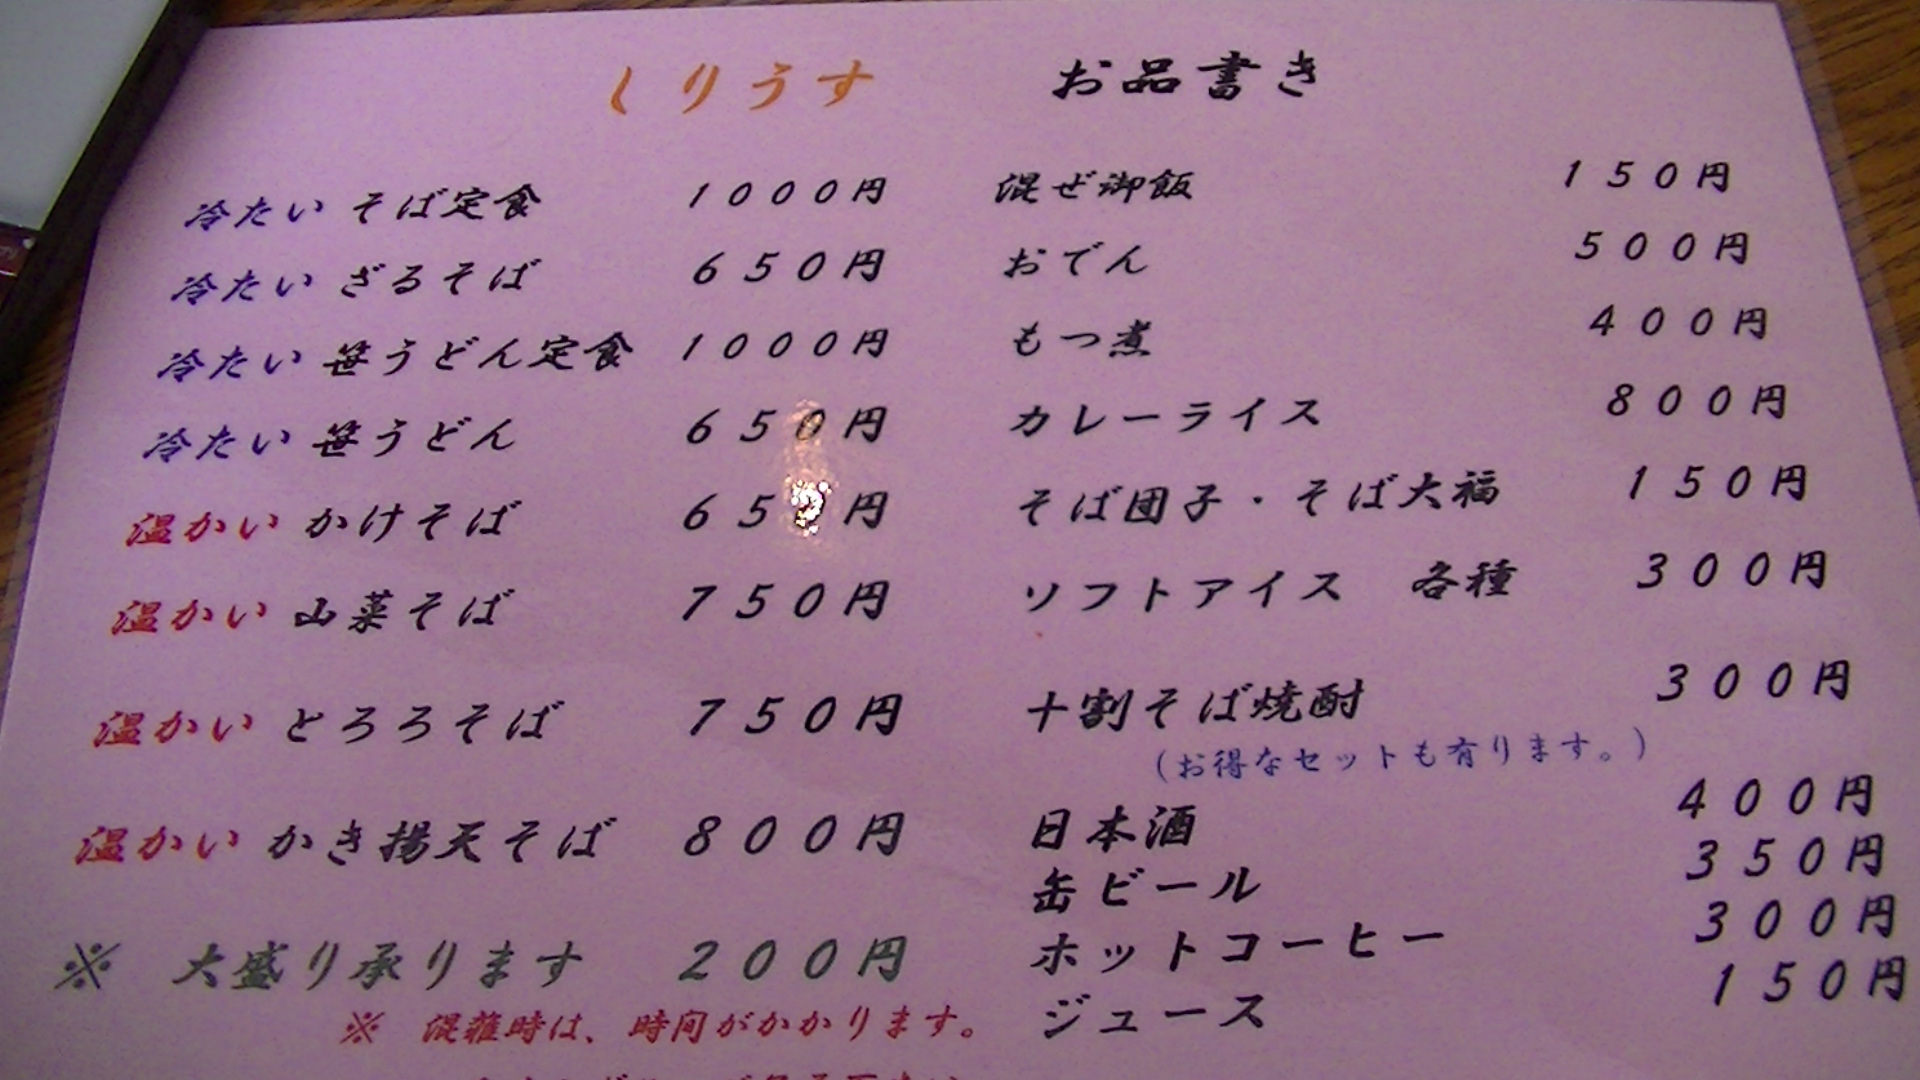 しりうす お品書き
冷たい そば定食 1000円
冷たい ざるそば 650円
冷たい 笹うどん定食 1000円
冷たい 笹うどん 650円
温かい かけそば 650円
温かい 山菜そば 750円
温かい とろろそば 750円
温かい かき揚天そば 800円
※ 大盛り承ります 200円
※ 混雑時は、時間がかかります。
混ぜ御飯 150円
おでん 500円
もつ煮 400円
カレーライス 800円
そば団子・そば大福 150円
ソフトアイス 各種 300円
十割そば焼酎 300円
(お得なセットも有ります。)
日本酒 400円
缶ビール 350円
ホットコーヒー 300円
ジュース 150円